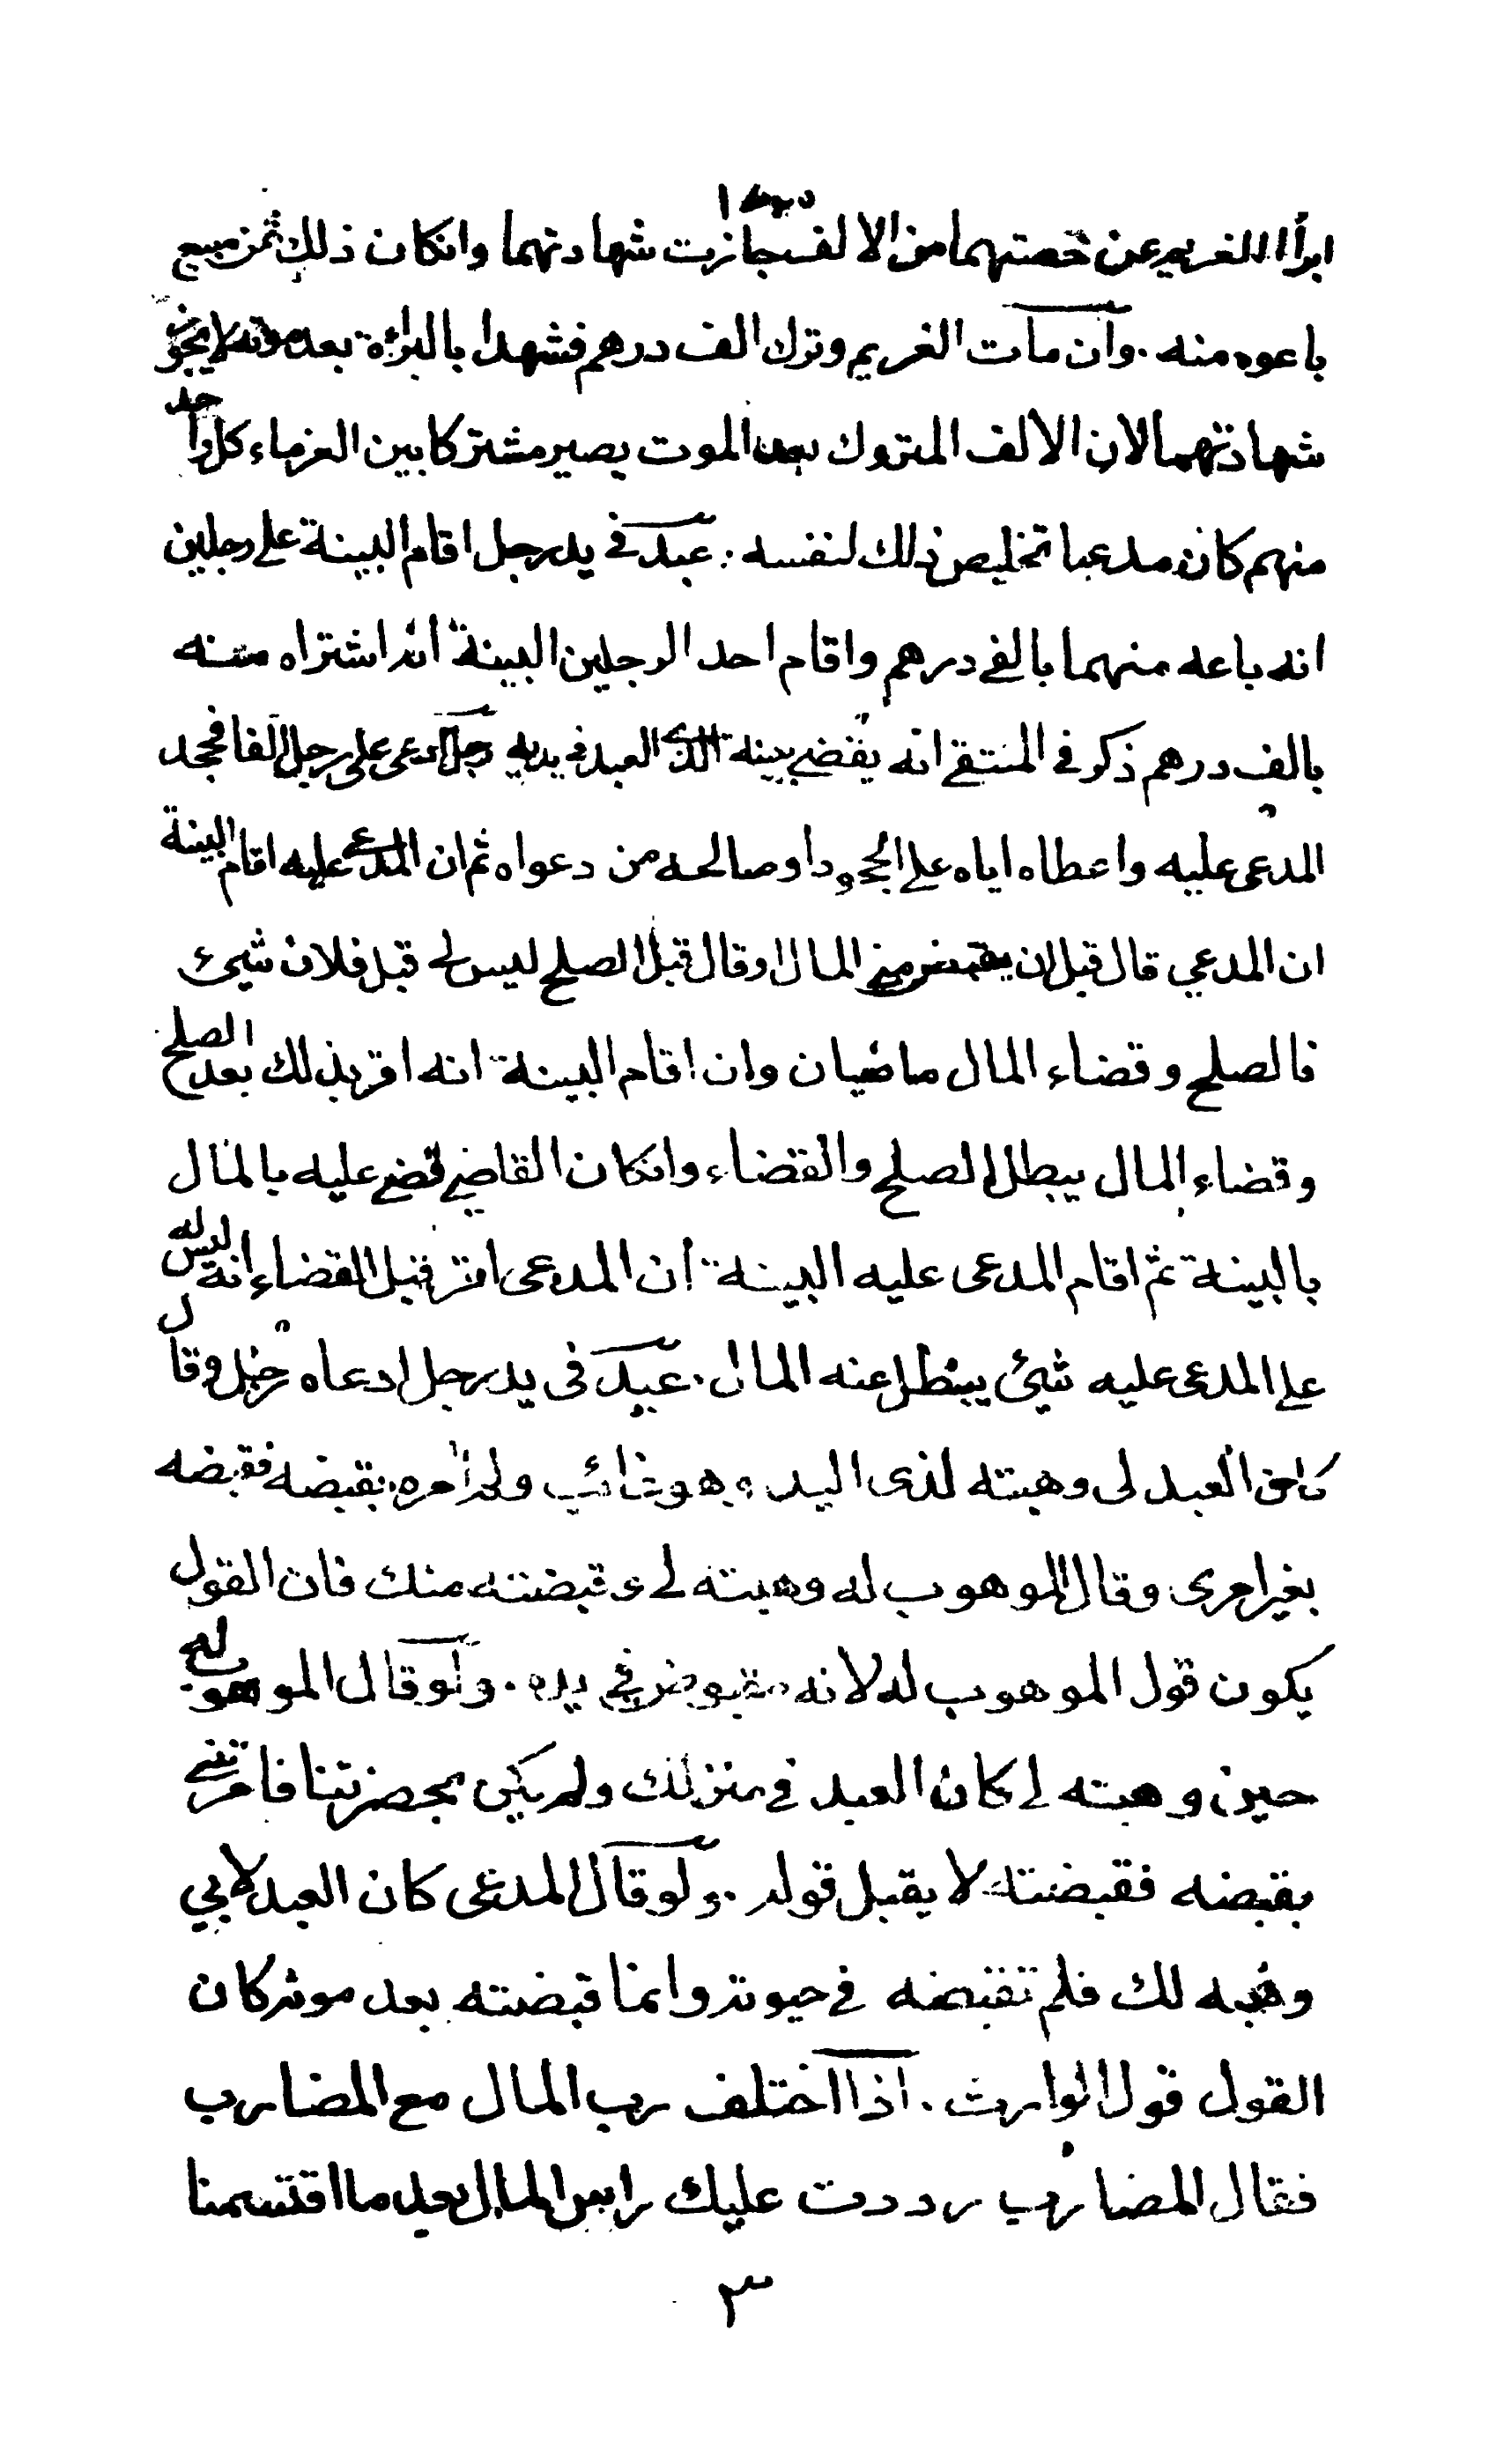 ابرأا الغريم عن حصتهما من الالف جازت شهادتهما وانكان ذلك ثمن مبيع
باعوه منه . وان مات الغريم وترك الف درهم فشهدا بالبراءة بعد موته لا يجوز
شهادتهما لان الالف المتروك بعد الموت يصير مشتركا بين الغرماء كل واحد
منهم كان مدعيا تخليص ذلك لنفسه . عبد في يد رجل اقام البينة على رجلين
انه باعه منهما بالفي درهم واقام احد الرجلين البينة انه اشتراه منه
بالف درهم ذكر في المنتقى انه يقضي ببينة الذي العبد في يديه رجل ادعى على رجل الفا فجحد
المدعى عليه واعطاه اياه على الجحود او صالحه من دعواه ثم ان المدعى عليه اقام البينة
ان المدعي قال قبل ان يقبض مني المال او قال قبل الصلح ليس لي قبل فلان شيئ
فالصلح وقضاء المال ماضيان وان اقام البينة انه اقر بذلك بعد الصلح
وقضاء المال يبطل الصلح والقضاء وانكان القاضي قضى عليه بالمال
بالبينة ثم اقام المدعى عليه البينة ان المدعى اقر قبل القضاء انه ليس له
على المدعى عليه شيئ يبطل عنه المال . عبد في يد رجل ادعاه رجل وقال
كان العبد لى وهبته لذى اليد وهو غائب ولم آمره بقبضه فقبضه
بغير امرى وقال الموهوب له وهبته لي وقبضته منك فان القول
يكون قول الموهوب له لانه مقبوض في يده . ولو قال الموهوب له
حين وهبته لي كان العبد في منزلك ولم يكن بحضرتنا فامرتني
بقبضه فقبضته لا يقبل قوله . ولو قال المدعى كان العبد لابي
وهبه لك فلم تقبضه في حيوته وانما قبضته بعد موته كان
القول قول الوارث . اذا اختلف رب المال مع المضارب
فقال المضارب رددت عليك راس المال بعد ما اقتسمنا
٣